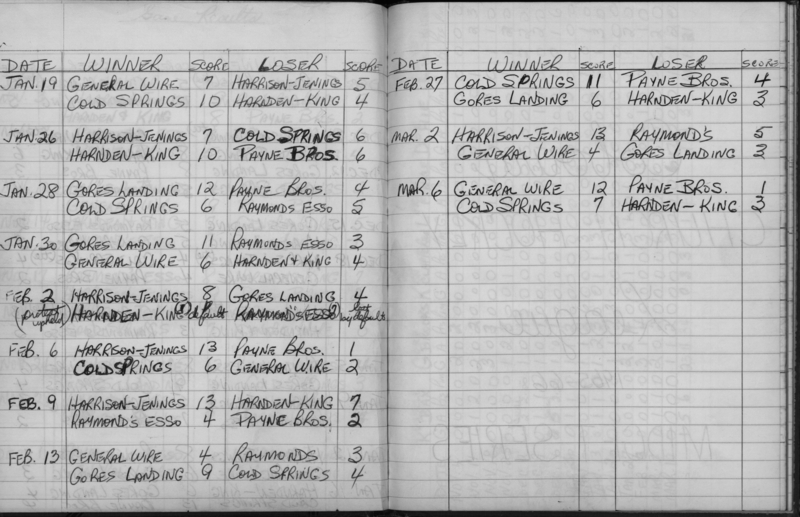 DATE WINNER SCORE LOSER SCORE
JAN. 19 GENERAL WIRE 7 HARRISON-JENINGS 5
COLD SPRINGS 10 HARNDEN-KING 4
JAN. 26 HARRISON-JENINGS 7 COLD SPRINGS 6
HARNDEN-KING 10 PAYNE BROS. 6
JAN. 28 GORES LANDING 12 PAYNE BROS. 4
COLD SPRINGS 6 RAYMONDS ESSO 5
JAN. 30 GORES LANDING 11 RAYMONDS ESSO 3
GENERAL WIRE 6 HARNDEN & KING 4
FEB. 2 HARRISON-JENINGS 8 GORES LANDING 4
(protest upheld) HARNDEN-KING default RAYMOND'S ESSO by default
FEB. 6 HARRISON-JENINGS 13 PAYNE BROS. 1
COLD SPRINGS 6 GENERAL WIRE 2
FEB. 9 HARRISON-JENINGS 13 HARNDEN-KING 7
RAYMOND'S ESSO 4 PAYNE BROS. 2
FEB. 13 GENERAL WIRE 4 RAYMONDS 3
GORES LANDING 9 COLD SPRINGS 4
DATE WINNER SCORE LOSER SCORE
FEB. 27 COLD SPRINGS 11 PAYNE BROS. 4
GORES LANDING 6 HARNDEN-KING 3
MAR. 2 HARRISON-JENINGS 13 RAYMOND'S 5
GENERAL WIRE 4 GORES LANDING 3
MAR. 6 GENERAL WIRE 12 PAYNE BROS. 1
COLD SPRINGS 7 HARNDEN-KING 3